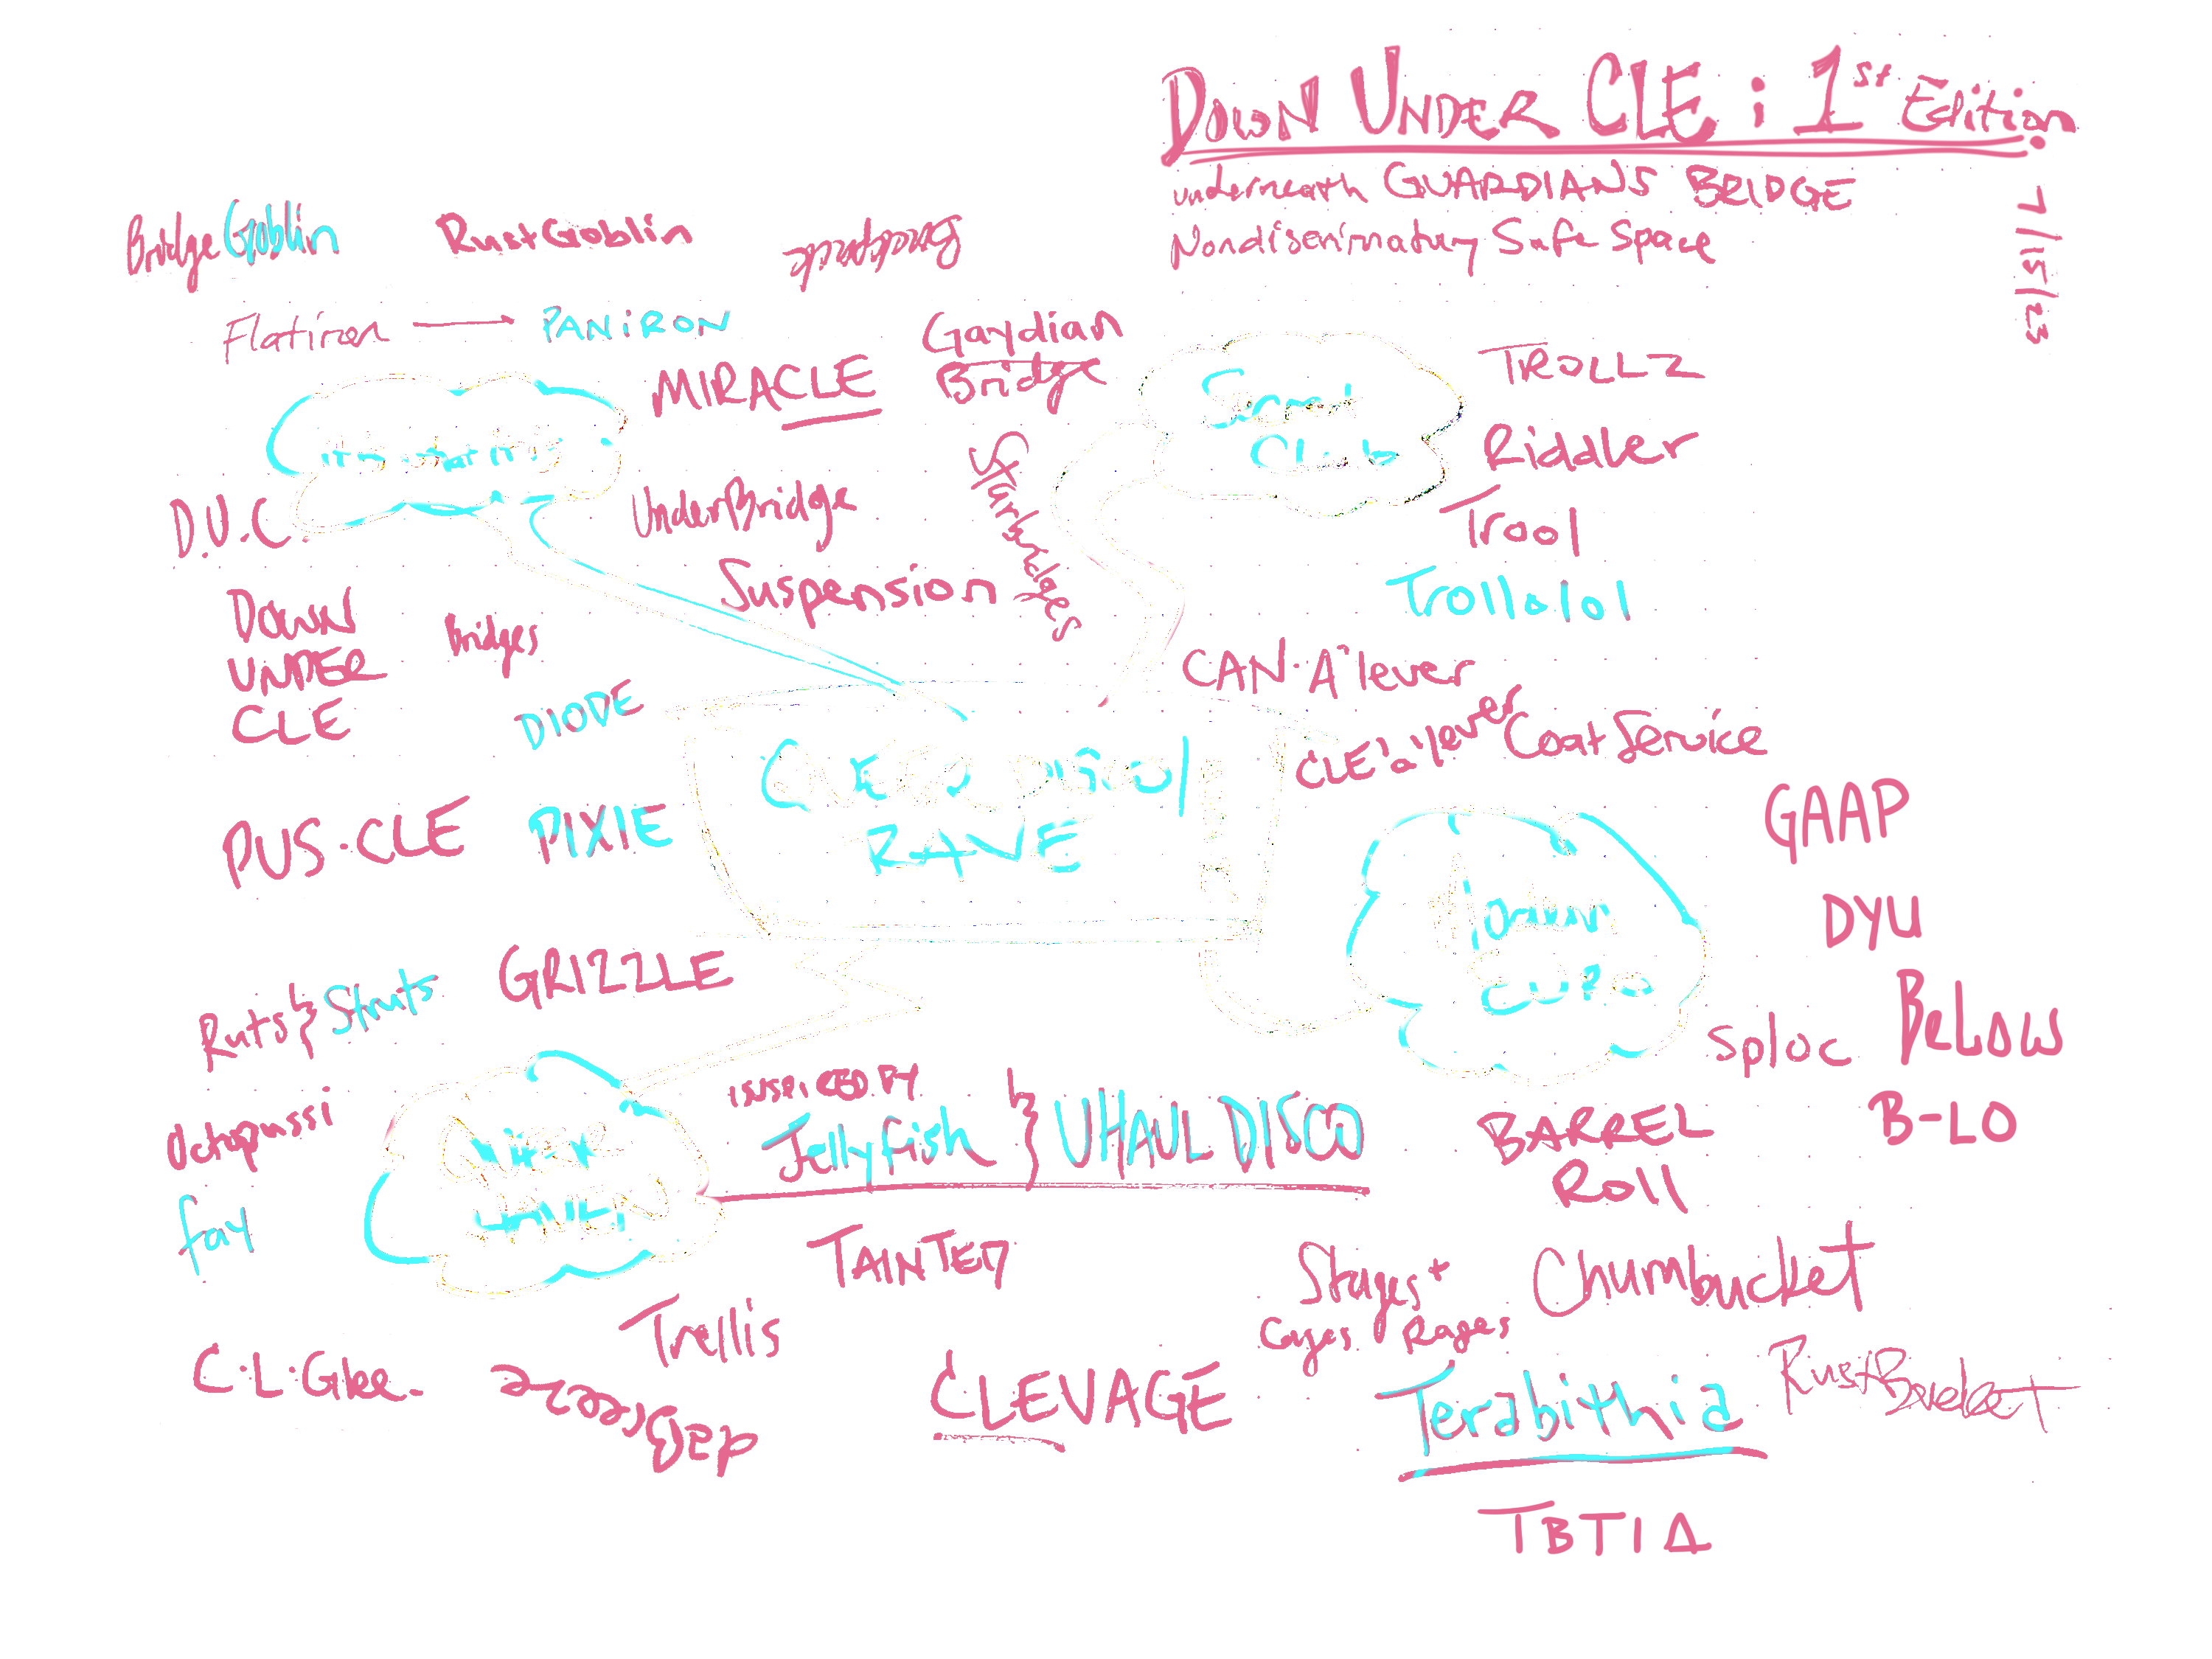 DOWN UNDER CLE : 1st Edition
underneath GUARDIANS BRIDGE
Nondiscriminatory Safe Space
7/15/23
BridgeGoblin
RustGoblin
Flatiron → PANIRON
Gaydian
Bridge
MIRACLE
TROLLZ
Riddler
D.U.C.
UnderBridge
Trool
Suspension
Trollolol
DOWN
UNDER
CLE
Bridges
CAN·A'lever
DIODE
CLE'a'lever
Coat Service
RAVE
PUS·CLE
PIXIE
GAAP
DYU
GRIZZLE
Ruts } Struts
sploc
BeLOW
B-LO
Octopussi
Jellyfish } UHAUL DISCO
BARREL
Roll
fay
TAINTED
Stages +
Cages
Rages
Chumbucket
Trellis
C·L·Glee
CLEVAGE
Terabithia
TBTIA